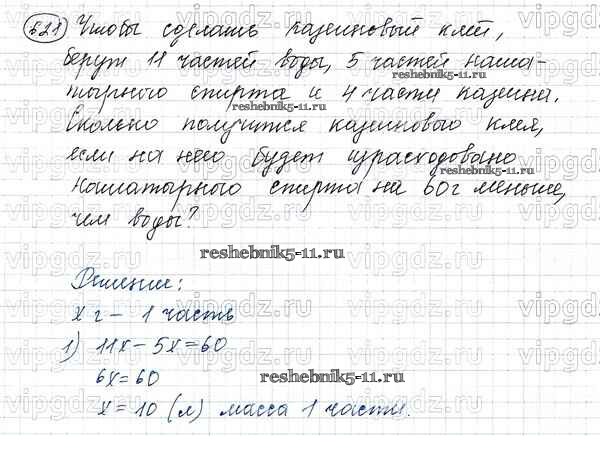 521 Чтобы сделать казеиновый клей,
берут 11 частей воды, 5 частей наша-
тырного спирта и 4 части казеина.
Сколько получится казеинового клея,
если на него будет израсходовано
нашатырного спирта на 60г меньше,
чем воды?
reshebnik5-11.ru
reshebnik5-11.ru
reshebnik5-11.ru
reshebnik5-11.ru
Решение:
x г - 1 часть
1) 11x - 5x = 60
6x = 60
reshebnik5-11.ru
x = 10 (л) масса 1 части.
vipgdz.ru